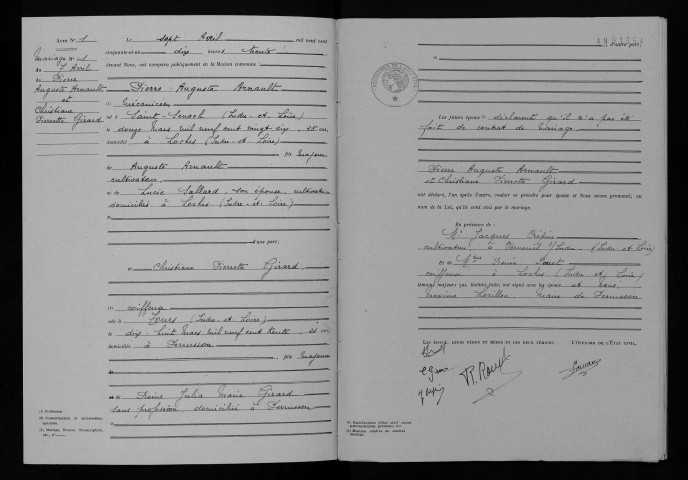 Acte N° 1
Mariage N° 1
du 7 Avril
de Pierre
Auguste Arnault
et
Christiane
Pierrette Girard
Le sept Avril mil neuf cent
cinquante-et-un dix heures trente
devant Nous, ont comparu publiquement en la Maison commune :
Pierre Auguste Arnault
(1) Mécanicien
né à Saint-Senoch (Indre et Loire)
le douze Mars mil neuf cent vingt six, 25 ans
domicilié à Loches (Indre et Loire)
fils majeur
de Auguste Arnault
cultivateur
et de Lucie Sallard, son épouse, cultivatrice
domiciliés à Loches (Indre-et-Loire)
d'une part;
et Christiane Pierrette Girard
(1) coiffeuse
née à Tours (Indre et Loire)
le dix huit Mars mil neuf cent trente, 21 ans
domiciliée à Perrusson
fille majeure
de Julia Maria Girard
sans profession, domiciliée à Perrusson
(1) Profession.
d'autre part;
Les futurs époux déclarent qu'il n'a pas été
fait de contrat de Mariage
Pierre Auguste Arnault
et Christiane Pierrette Girard
ont déclaré, l'un après l'autre, vouloir se prendre pour époux et Nous avons prononcé, au
nom de la Loi, qu'ils sont unis par le mariage.
En présence de
Mr Jacques Crépin
cultivateur, à Verneuil s/Indre (Indre et Loire)
et de Mme
coiffeuse à Loches (Indre et Loire)
témoins majeurs qui, lecture faite, ont signé avec les époux et nous,
Maire de Perrusson
Les époux, leurs pères et mères et les deux témoins, L'Officier de l'État civil,